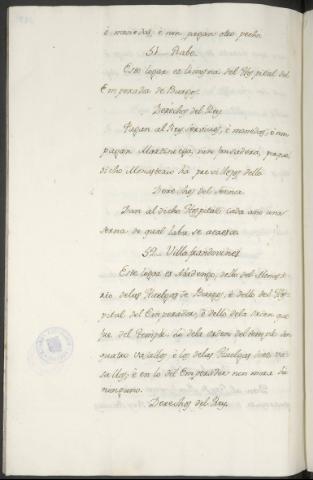 é monedas, é non pagan otro pecho
51 Rabe.
Este logar es limosna del Hospital del
Emperador de Burgos.
Derechos del Rey
Pagan al Rey servicios, é monedas, é non
pagan Martiniega, nin fonsadera, que
dicho Monesterio há previllejos dello
Derechos del Señor
Dan al dicho Hospital cada año una
serna de qual labor se acaesce.
52 Villafrandovinez
Este logar es Abadengo, dello del Monest
rio delas Huelgas de Burgos, é dello del Hos
pital del Emperador, é dello dela orden que
fue del Temple. há dela orden del temple
quatro vasallos, é los delas Huelgas siete va
sallos, é en lo del Emperador non mora
ninguno.
Derechos del Rey.